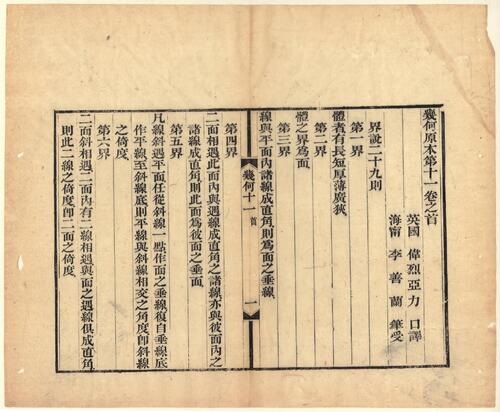 幾何原本第十一卷之首
英國 偉烈亞力 口譯
海甯 李善蘭 筆受
界說二十九則
第一界
體者有長短厚薄廣狹
第二界
體之界爲面
第三界
線與平面內諸線成直角則爲面之垂線
幾何十一 首 一
第四界
二面相遇此面內與遇線成直角之諸線亦與彼面內之
諸線成直角則此面爲彼面之垂面
第五界
凡線斜遇平面任從斜線一點作面之垂線復自垂線底
作平線至斜線底則平線與斜線相交之角度卽斜線
之倚度
第六界
二面斜相遇二面內有二線相遇與面之遇線俱成直角
則此二線之倚度卽二面之倚度